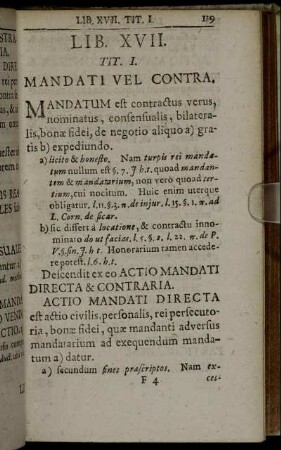 LIB. XVII. TIT. I. 119
LIB. XVII.
TIT. I.
MANDATI VEL CONTRA.
MANDATUM est contractus verus,
nominatus, consensualis, bilatera-
lis, bonæ fidei, de negotio aliquo a) gra-
tis b) expediundo.
a) licito & honesto. Nam turpis rei manda-
tum nullum est §. 7. J. h. t. quoad mandan-
tem & mandatarium, non verò quoad ter-
tium, cui nocitum. Huic enim uterque
obligatur. l. 11. §. 3. π. de injur. l. 15. §. 1. π. ad
L. Corn. de sicar.
b) sic differt à locatione, & contractu inno-
minato do ut facias, l. 5. §. 2. l. 22. π. de P.
V. §. fin. J. h. t. Honorarium tamen accede-
re potest. l. 6. h. t.
Descendit ex eo ACTIO MANDATI
DIRECTA & CONTRARIA.
ACTIO MANDATI DIRECTA
est actio civilis, personalis, rei persecuto-
ria, bonæ fidei, quæ mandanti adversus
mandatarium ad exequendum manda-
tum a) datur.
a) secundum fines præscriptos. Nam ex-
F 4 ces-